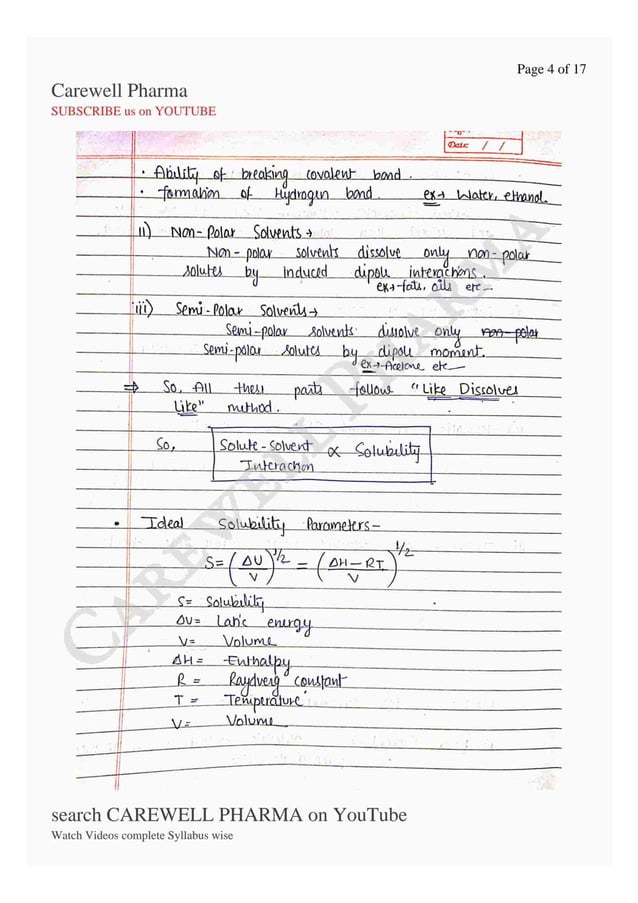 Page 4 of 17
Carewell Pharma
SUBSCRIBE us on YOUTUBE
Date: / /
• Ability of breaking covalent bond.
• formation of Hydrogen bond. ex→ Water, ethanol.
ii) Non-Polar Solvents →
Non-polar solvents dissolve only non-polar
solutes by induced dipole interactions.
ex→fats, oils etc—
iii) Semi-Polar Solvents→
Semi-polar solvents dissolve only non-polar
Semi-polar solutes by dipole moment.
ex→Acetone etc—
⇒ So, All these parts follow "Like Dissolves
Like" method.
So, Solute-Solvent Interaction ∝ Solubility
• Ideal Solubility Parameters—
S=(ΔU/V)^1/2 = (ΔH-RT/V)^1/2
S= Solubility
ΔU= Latic energy
V= Volume
ΔH= Enthalpy
R = Raydverg constant
T = Temperature
V= Volume
CAREWELL PHARMA
search CAREWELL PHARMA on YouTube
Watch Videos complete Syllabus wise